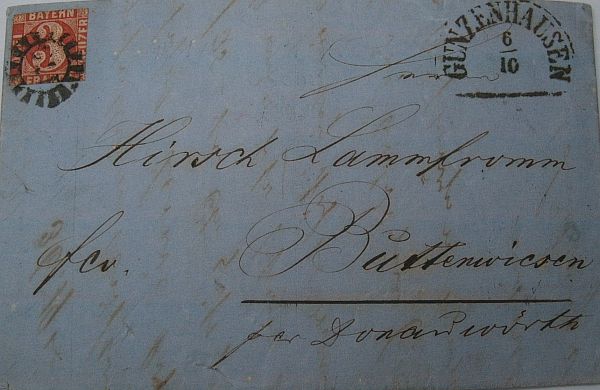 BAYERN
3
GUNZENHAUSEN
6
10
Herrn
Hirsch Lammfromm
fco.
Buttenwiesen
per Donauwörth